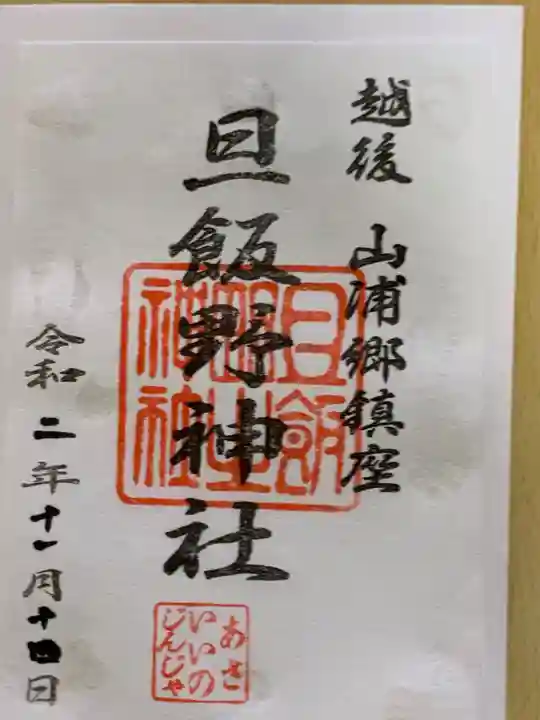 越後 山浦郷鎮座
旦飯野神社
令和二年十一月十四日
旦飯
野
神社
あさ
いいの
じんじゃ